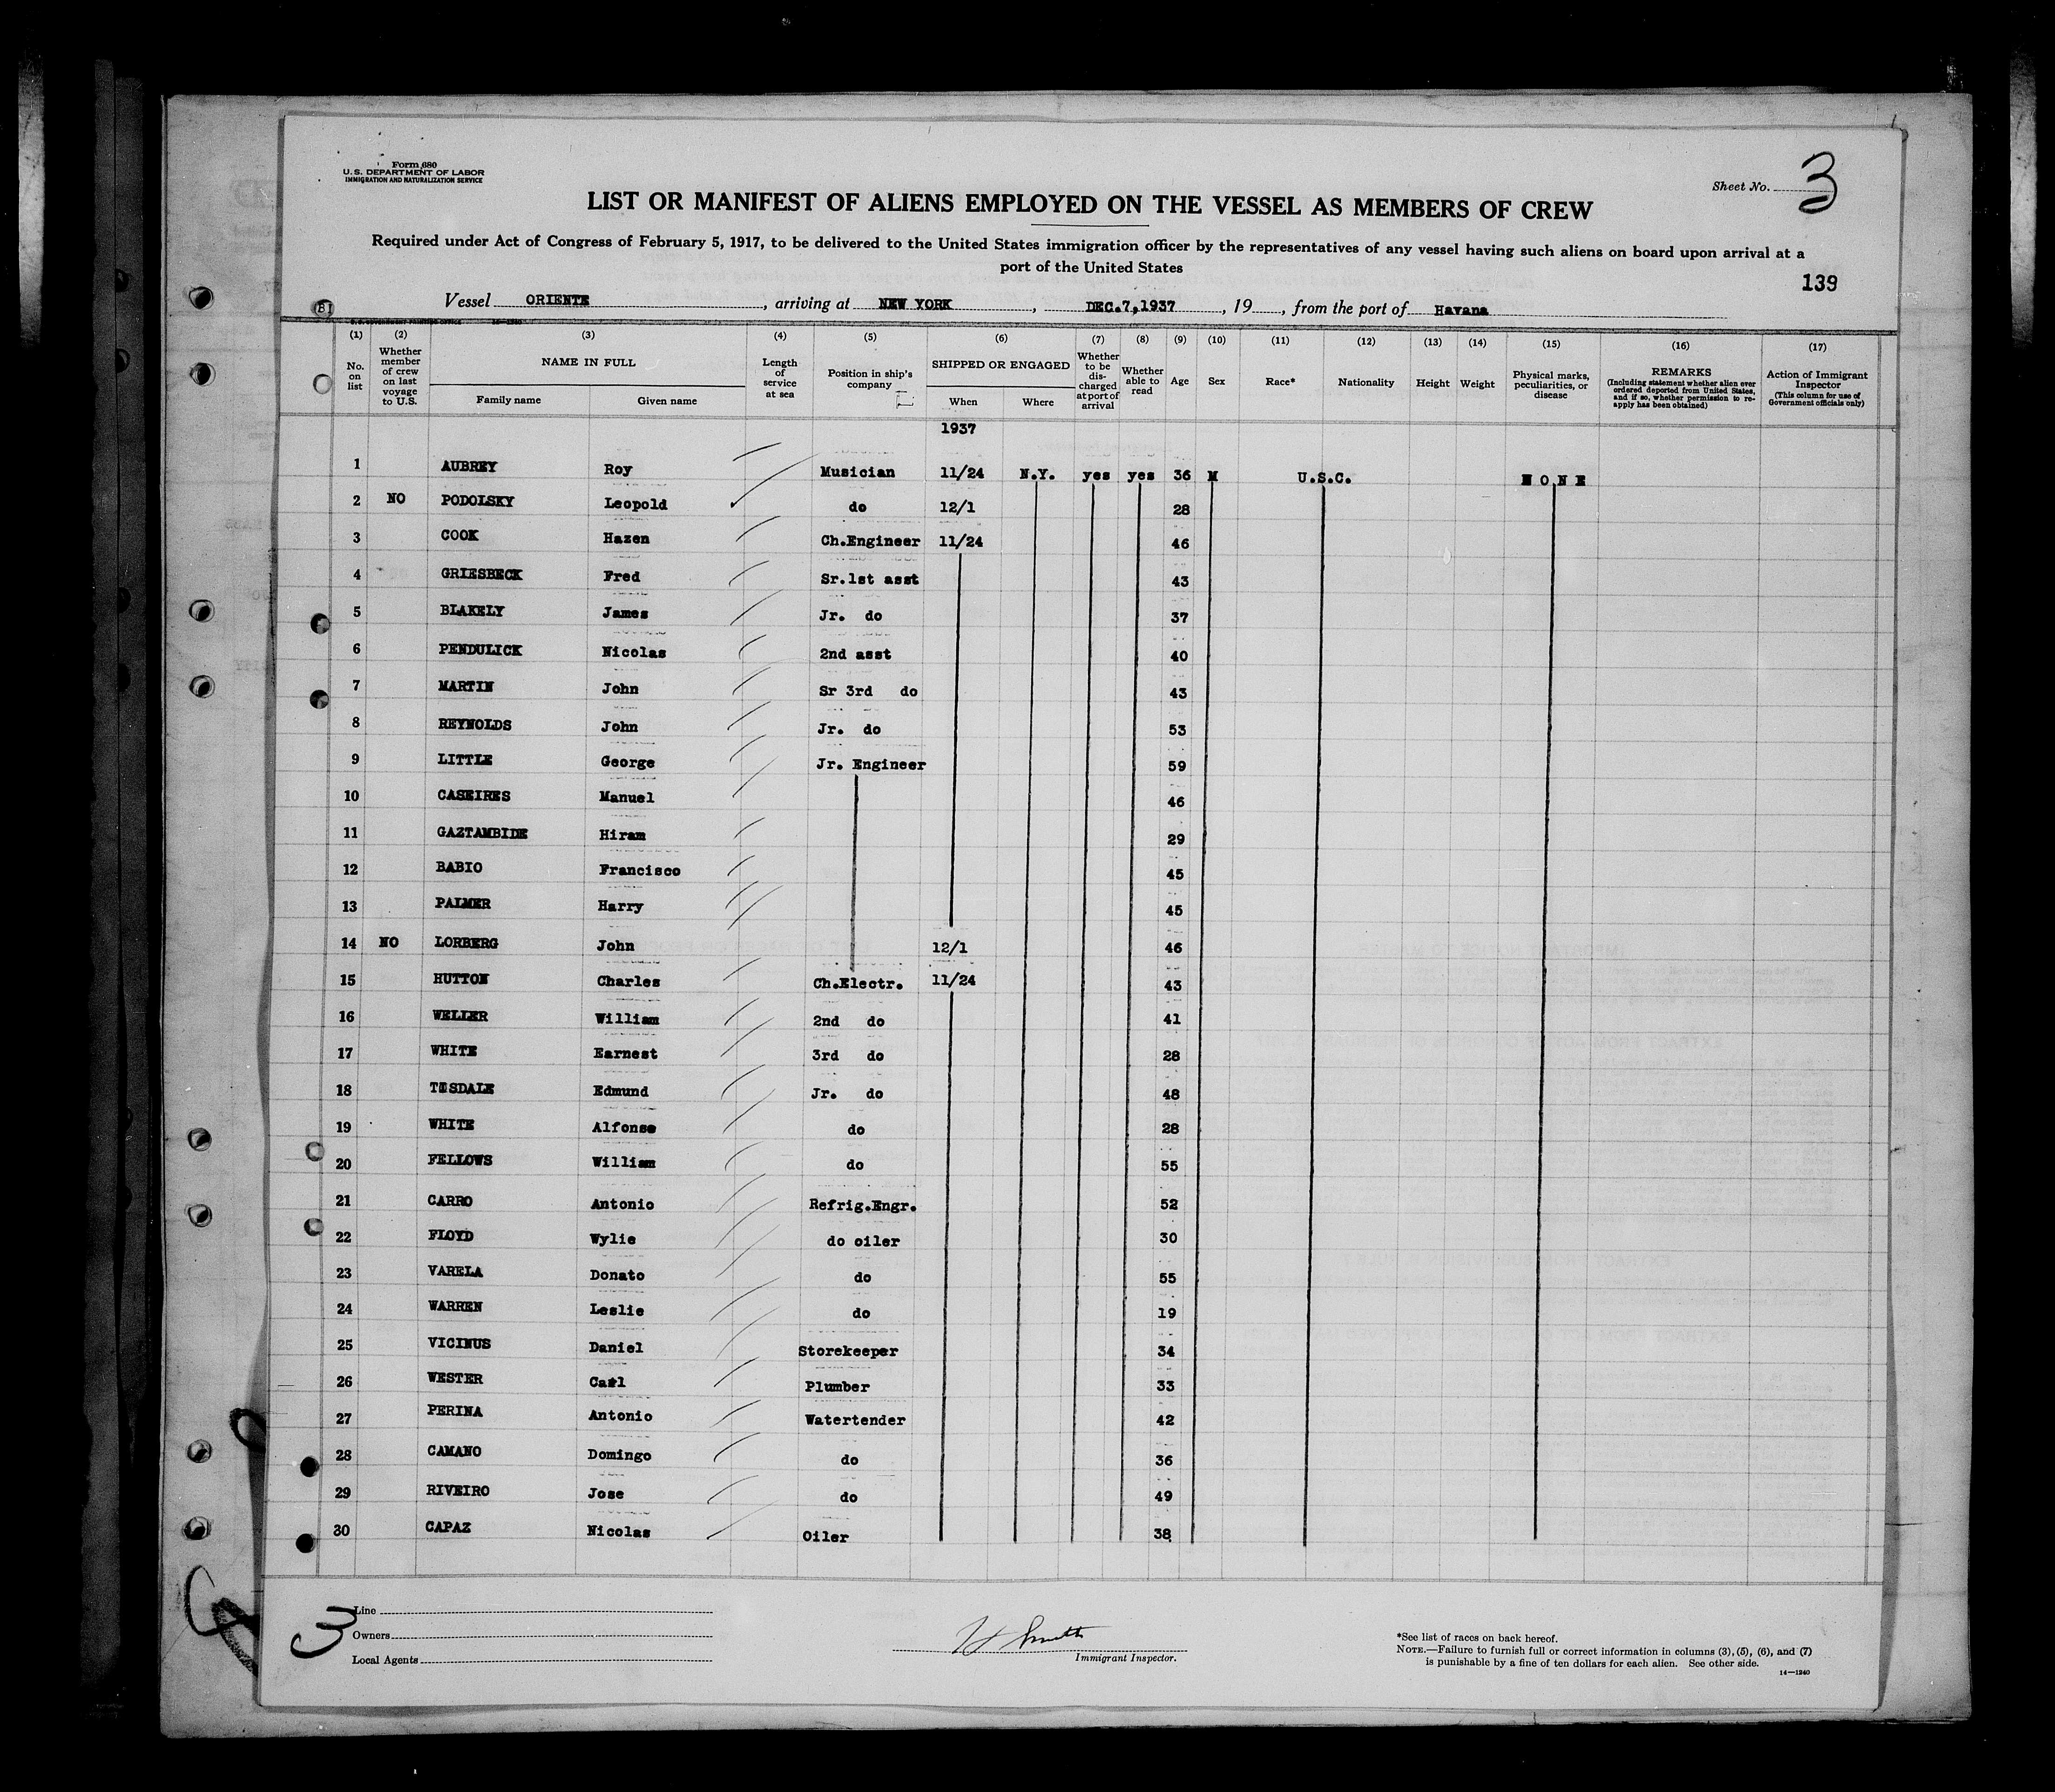 Form 680
U. S. DEPARTMENT OF LABOR
IMMIGRATION AND NATURALIZATION SERVICE
Sheet No. 3
LIST OR MANIFEST OF ALIENS EMPLOYED ON THE VESSEL AS MEMBERS OF CREW
Required under Act of Congress of February 5, 1917, to be delivered to the United States immigration officer by the representatives of any vessel having such aliens on board upon arrival at a
port of the United States
139
Vessel ORIENTE, arriving at NEW YORK, DEC.7,1937, 19, from the port of Havana
(1) (2) (3) (4) (5) (6) (7) (8) (9) (10) (11) (12) (13) (14) (15) (16) (17)
No. on list
Whether member of crew on last voyage to U.S.
NAME IN FULL
Family name Given name
Length of service at sea
Position in ship's company
SHIPPED OR ENGAGED
When Where
Whether to be discharged at port of arrival
Whether able to read
Age
Sex
Race*
Nationality
Height
Weight
Physical marks, peculiarities, or disease
REMARKS
(Including statement whether alien ever ordered deported from United States, and if so, whether permission to reapply has been obtained)
Action of Immigrant Inspector
(This column for use of Government officials only)
1937
1 AUBREY Roy Musician 11/24 N.Y. yes yes 36 M U.S.C. NONE
2 NO PODOLSKY Leopold do 12/1 28
3 COOK Hazen Ch.Engineer 11/24 46
4 GRIESBECK Fred Sr.1st asst 43
5 BLAKELY James Jr. do 37
6 PENDULICK Nicolas 2nd asst 40
7 MARTIN John Sr 3rd do 43
8 REYNOLDS John Jr. do 53
9 LITTLE George Jr. Engineer 59
10 CASEIRES Manuel 46
11 GAZTAMBIDE Hiram 29
12 BABIO Francisco 45
13 PALMER Harry 45
14 NO LORBERG John 12/1 46
15 HUTTON Charles Ch.Electr. 11/24 43
16 WELLER William 2nd do 41
17 WHITE Earnest 3rd do 28
18 Edmund Jr. do 48
19 WHITE Alfonse do 28
20 FELLOWS William do 55
21 CARRO Antonio Refrig.Engr. 52
22 FLOYD Wylie do oiler 30
23 VARELA Donato do 55
24 WARREN Leslie do 19
25 VICINUS Daniel Storekeeper 34
26 WESTER Carl Plumber 33
27 PERINA Antonio Watertender 42
28 CAMANO Domingo do 36
29 RIVEIRO Jose do 49
30 CAPAZ Nicolas Oiler 38
3
Line
Owners
Local Agents
Smith
Immigrant Inspector.
*See list of races on back hereof.
NOTE.—Failure to furnish full or correct information in columns (3), (5), (6), and (7)
is punishable by a fine of ten dollars for each alien. See other side.
14—1240